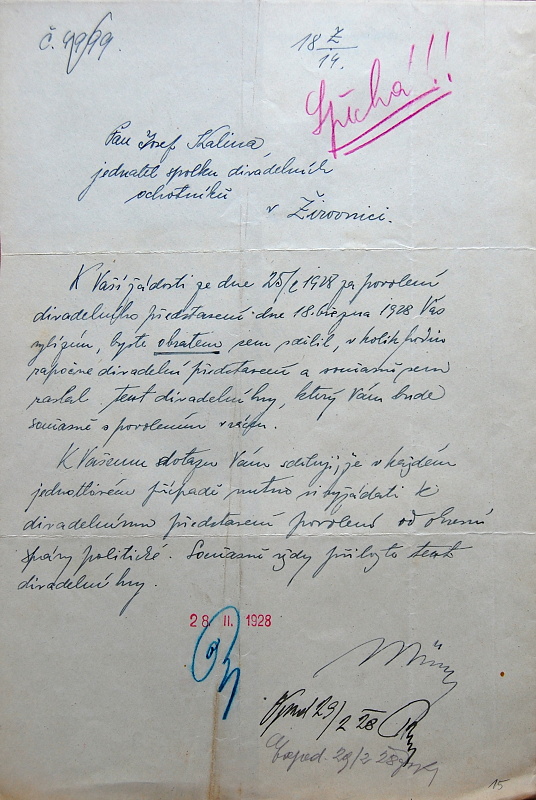 č. 9999.
18 Ž/14.
Spěchá!!!
Pan Josef Kalina
jednatel spolku divadelních
ochotníků
v Žirovnici.
K Vaší žádosti ze dne 25/2 1928 za povolení
divadelního představení dne 18. března 1928 Vás
vyzývám, byste obratem sem sdělil, v kolik hodin
započne divadelní představení a současně sem
zaslal text divadelní hry, který Vám bude
současně s povolením vrácen.
K Vašemu dotazu Vám sděluji, že v každém
jednotlivém případě nutno si vyžádati k
divadelnímu představení povolení od okresní
správy politické. Současně vždy přiložte text
divadelní hry.
28 II. 1928
29/2 28
Exped. 29/2 28
15